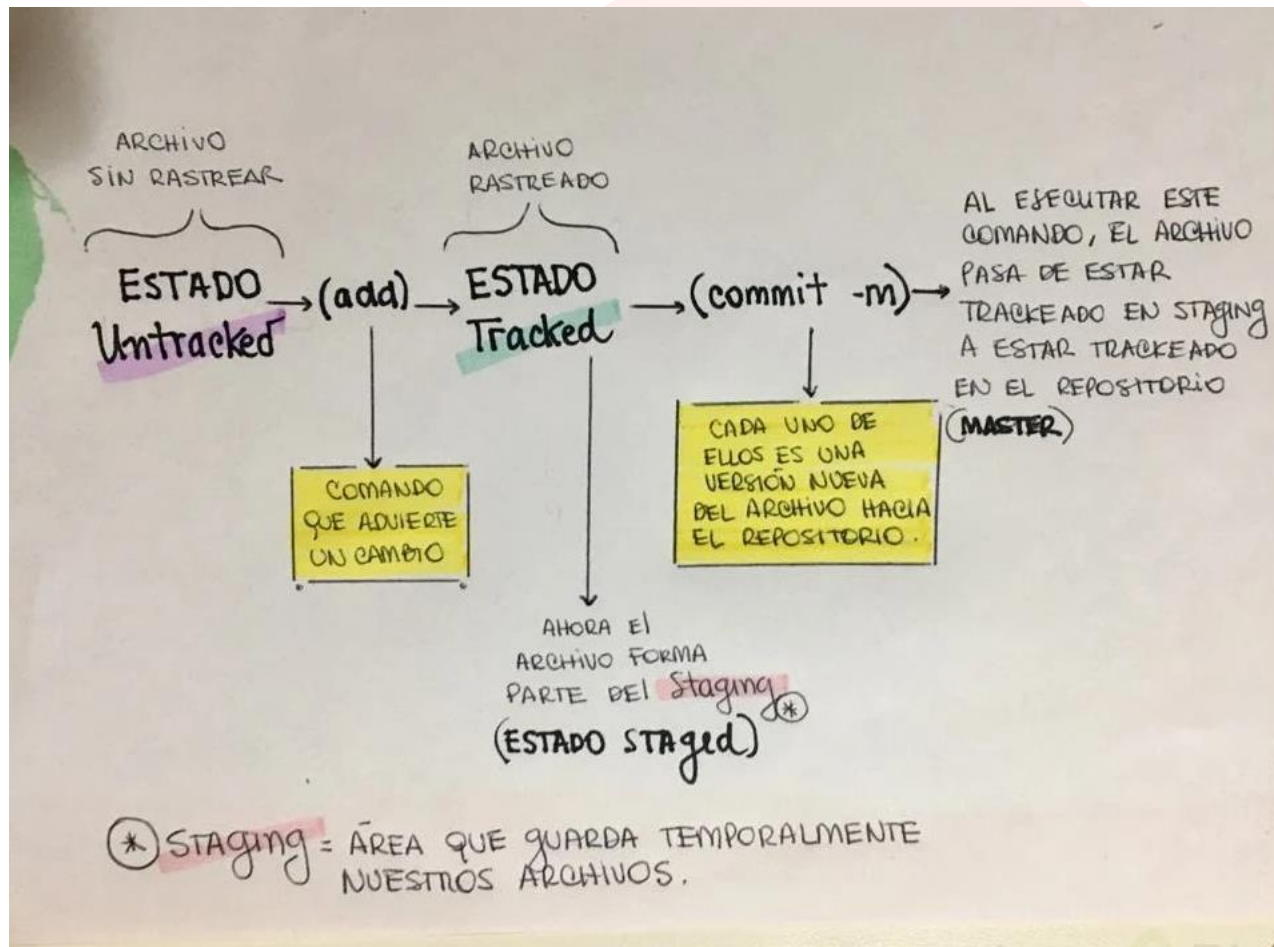 ARCHIVO
SIN RASTREAR
ARCHIVO
RASTREADO
ESTADO
Untracked
(add)
ESTADO
Tracked
(commit -m)
AL EJECUTAR ESTE
COMANDO, EL ARCHIVO
PASA DE ESTAR
TRACKEADO EN STAGING
A ESTAR TRACKEADO
EN EL REPOSITORIO
(MASTER)
COMANDO
QUE ADVIERTE
UN CAMBIO
CADA UNO DE
ELLOS ES UNA
VERSIÓN NUEVA
DEL ARCHIVO HACIA
EL REPOSITORIO.
AHORA El
ARCHIVO FORMA
PARTE DEl Staging *
(ESTADO STAged)
* STAging = ÁREA QUE GUARDA TEMPORALMENTE
NUESTROS ARCHIVOS.